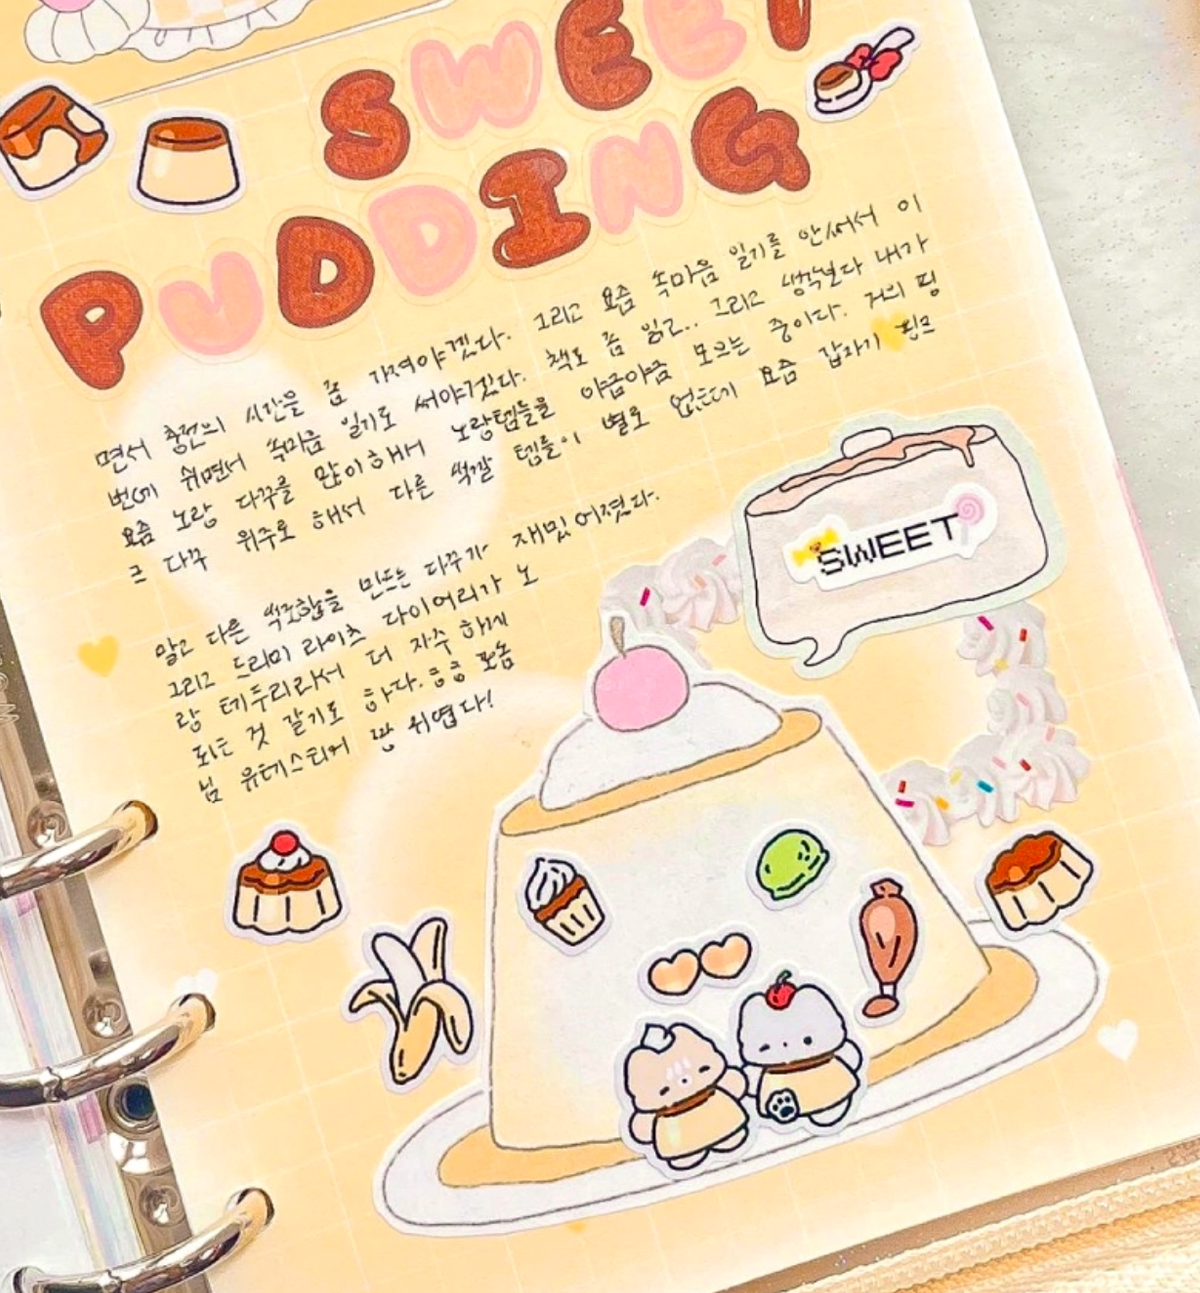 SWEET
PUDDING
면서 충전의 시간을 좀 가져야겠다. 그리고 요즘 속마음 일기를 안써서 이
번에 쉬면서 속마음 일기도 써야겠다. 책도 좀 읽고.. 그리고 생각보다 내가
요즘 노랑 다꾸를 많이해서 노랑템들을 야금야금 모으는 중이다. 거의 핑
크 다꾸 위주로 해서 다른 색깔 템들이 별로 없는데 요즘 갑자기 핑크
말고 다른 색조합을 만드는 다꾸가 재밌어졌다.
그리고 드리미 라이츠 다이어리가 노
랑 테두리라서 더 자주 하게
되는 것 같기도 하다. ㅎㅎ 포놈
님 유테스티커 짱 귀엽다!
SWEET